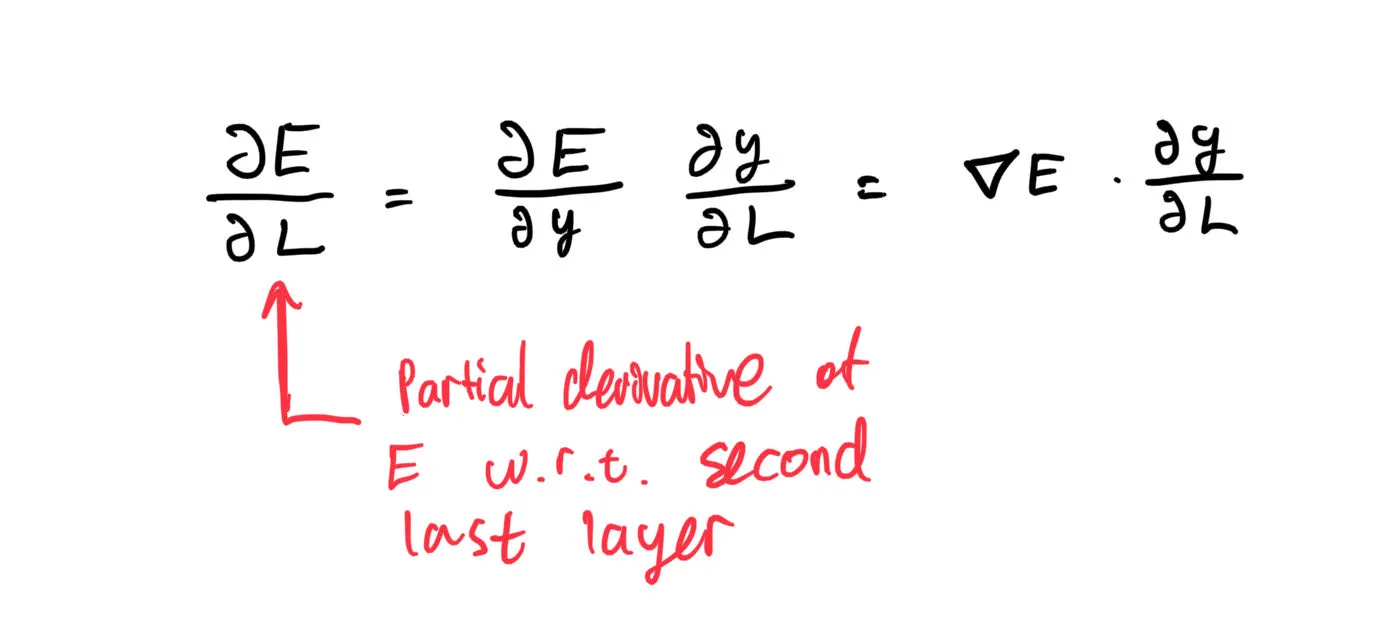 ∂E/∂L = ∂E/∂y ∂y/∂L = ∇E · ∂y/∂L
Partial derivative of
E w.r.t. second
last layer